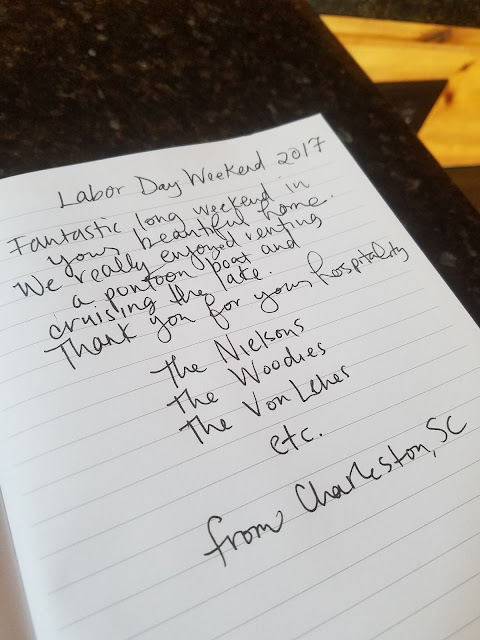 Labor Day Weekend 2017
Fantastic long weekend in
your beautiful home.
We really enjoyed renting
a pontoon boat and
cruising the lake.
Thank you for your hospitality
The Nielsons
The Woodies
The Von Lehes
etc.
from Charleston, SC